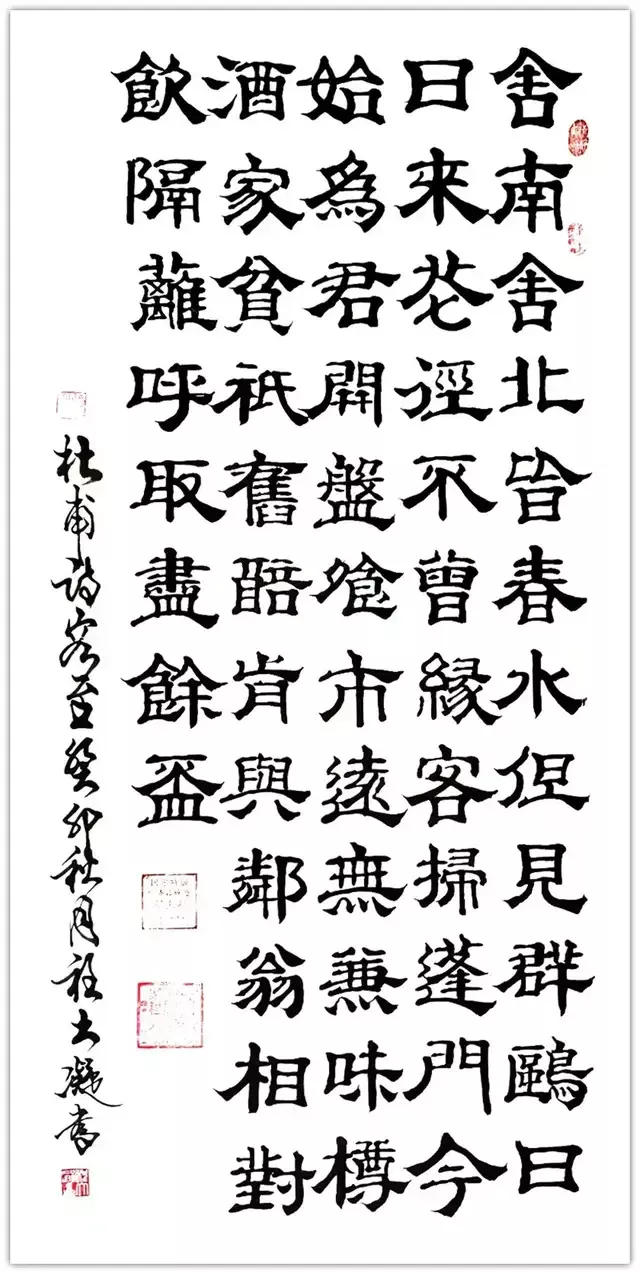 舍南舍北皆春水但見群鷗日
日来花徑不曾緣客掃蓬門今
始為君開盤飧市遠無兼味樽
酒家貧祇舊醅肯與鄰翁相對
飲隔蘺呼取盡餘盃
杜甫詩客至癸卯秋月程士凝書